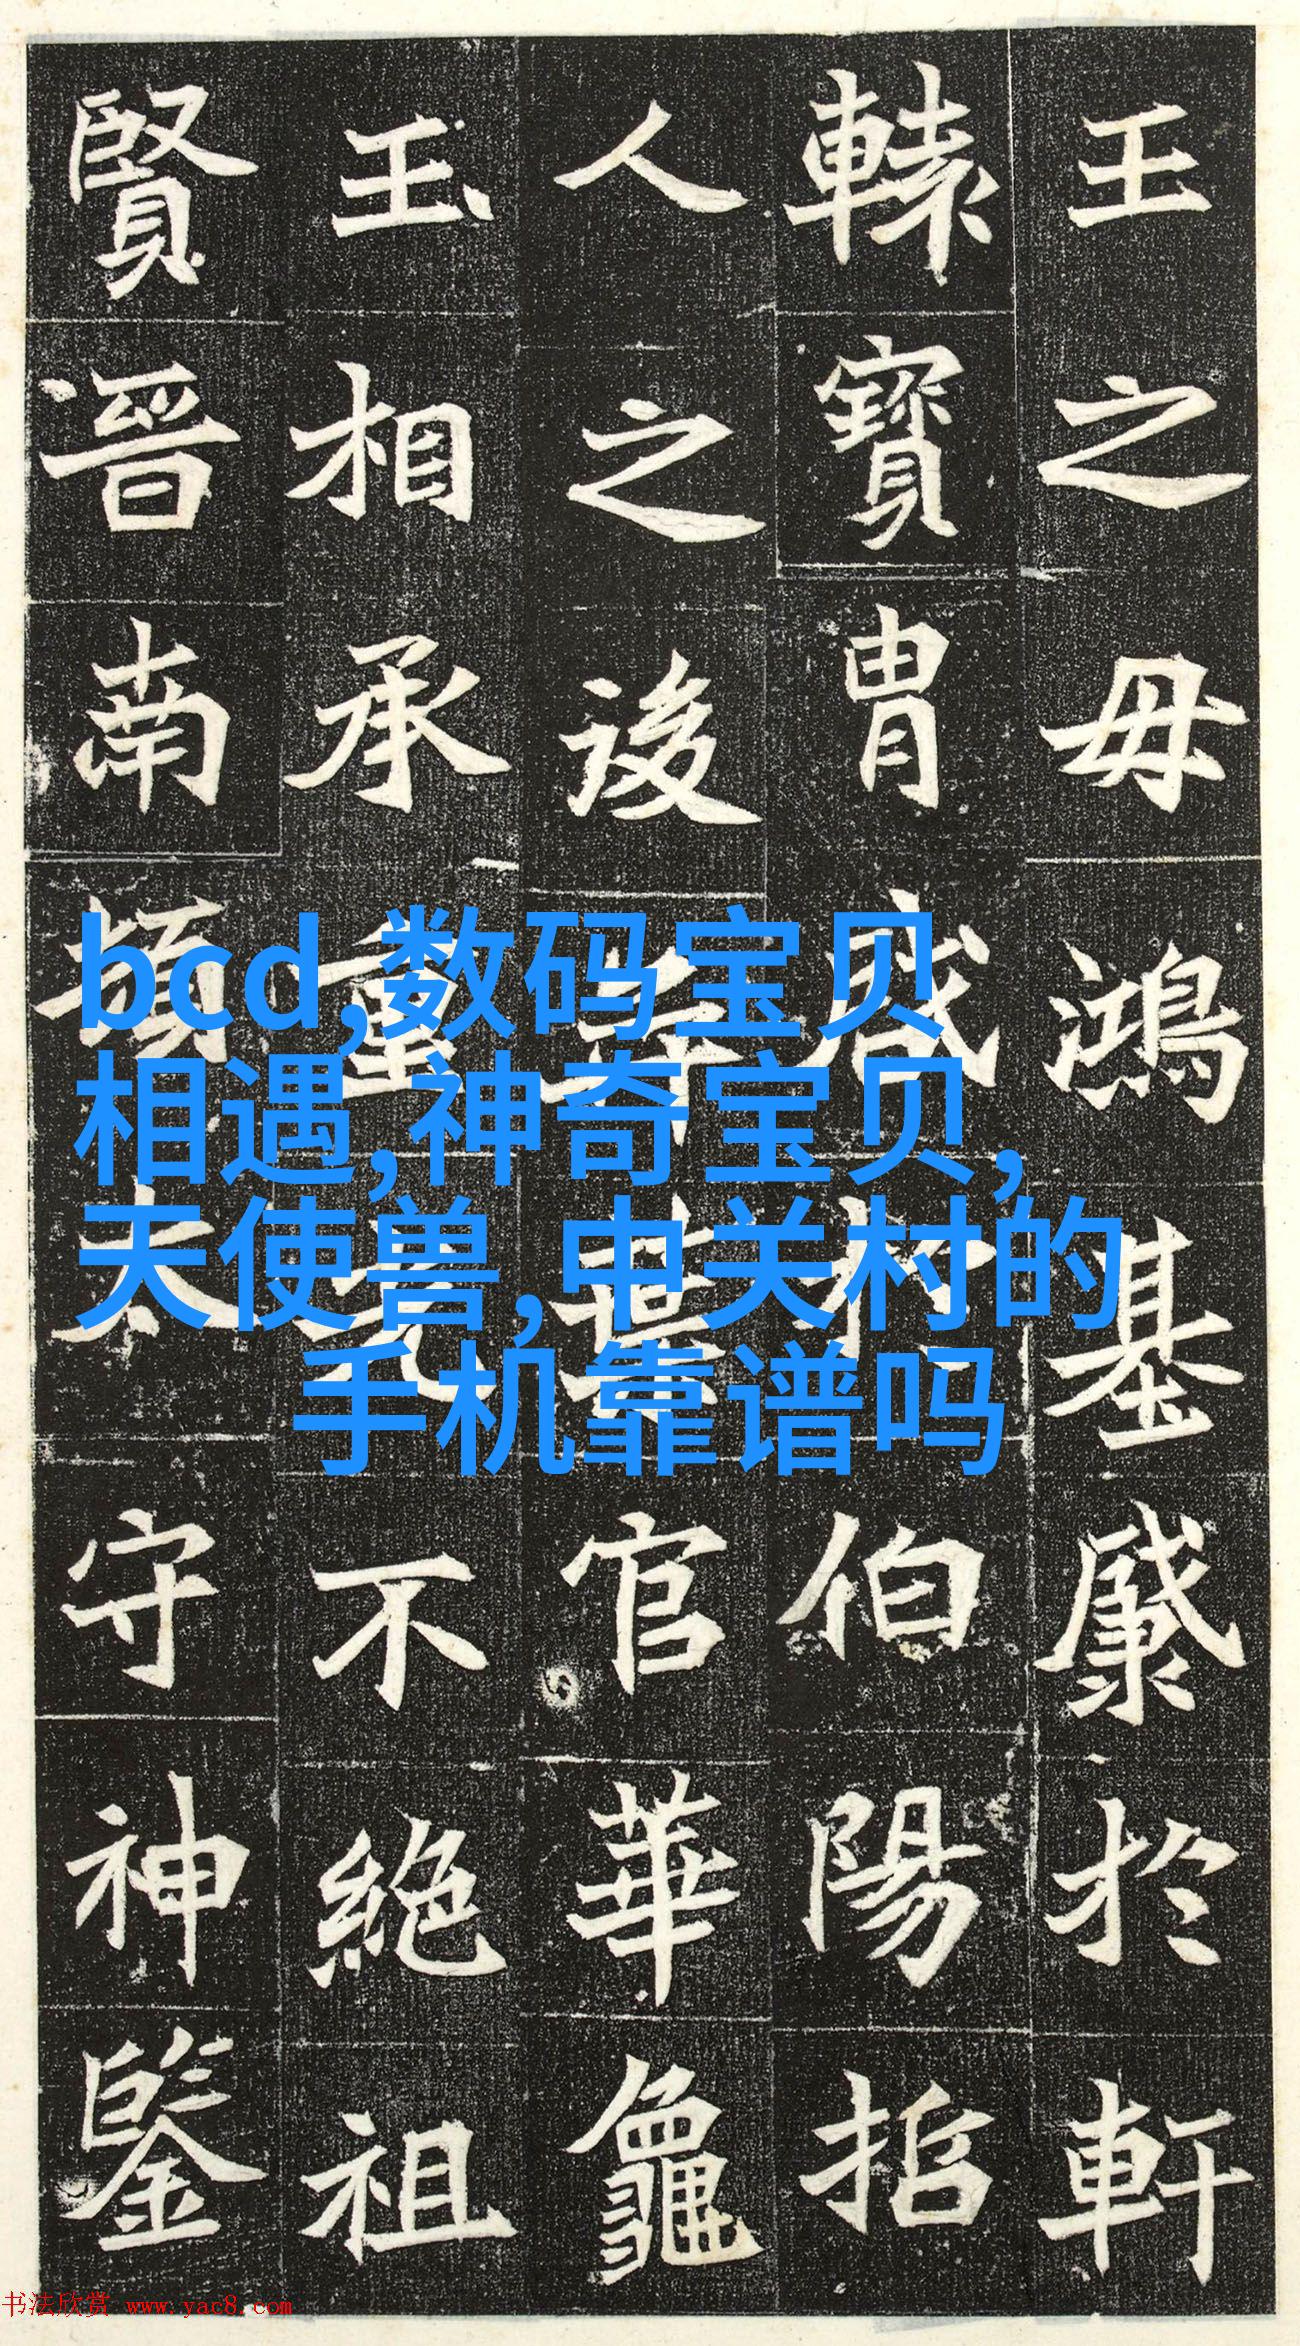 王之毋鴻基於軒
轅寶胄於伯陽
人之後葉官華龜
玉相承重光不絶祖
賢晉南頓太守神鑒
bcd,数码宝贝
相遇,神奇宝贝,
天使兽,中关村的
手机靠谱吗
书法欣赏 www.yac8.com